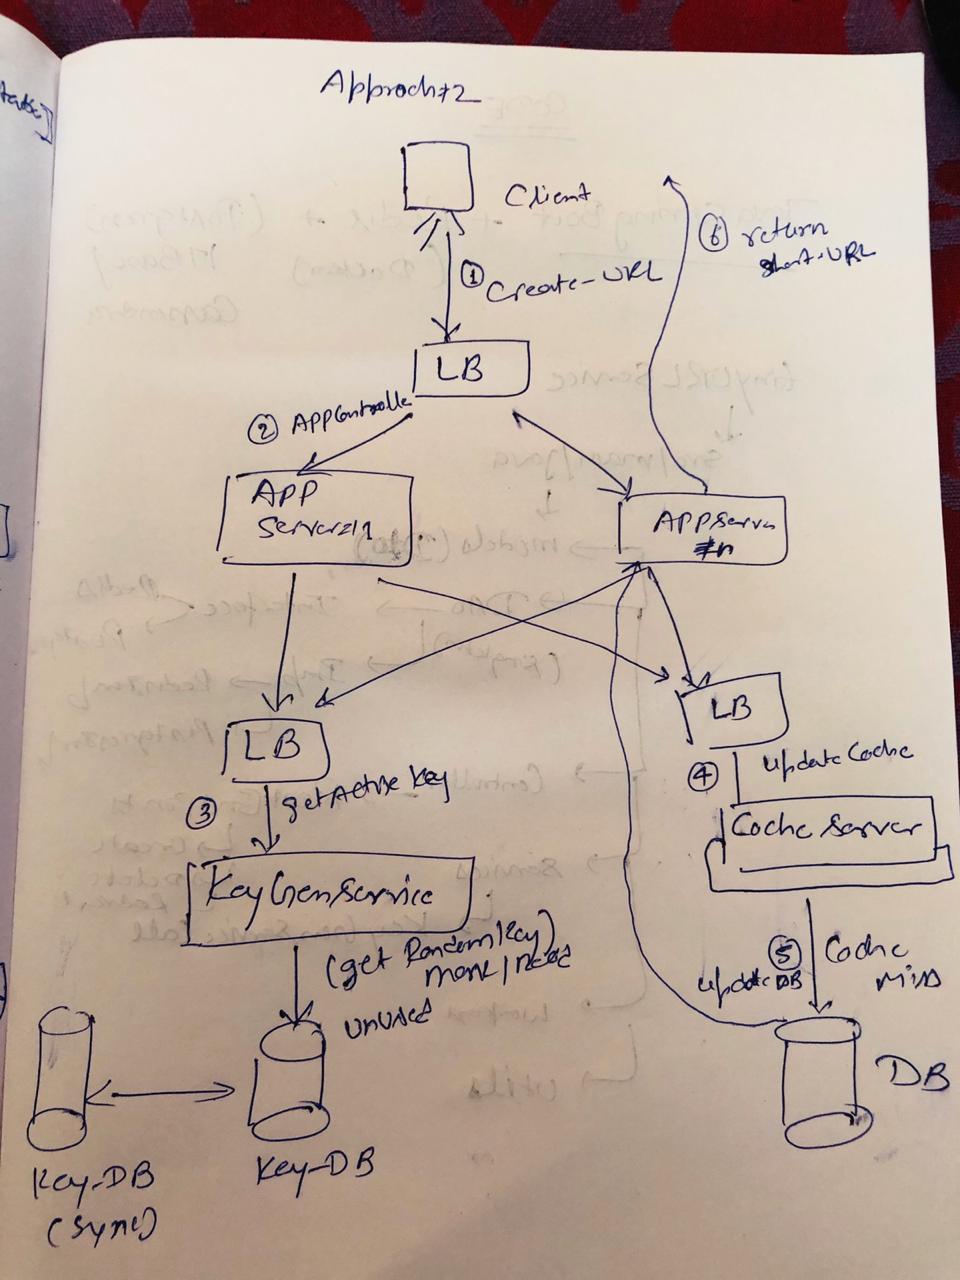 Approch #2
Client
① Create-URL
⑥ return
short-URL
LB
② APPControlle
APP
Server#1
APPServer
#n
LB
LB
③ getActive Key
④ update Cache
KeyGenService
Cache Server
(get RandomKey)
mark/need
unused
⑤ Cache
miss
update DB
DB
Key-DB
(sync)
Key-DB